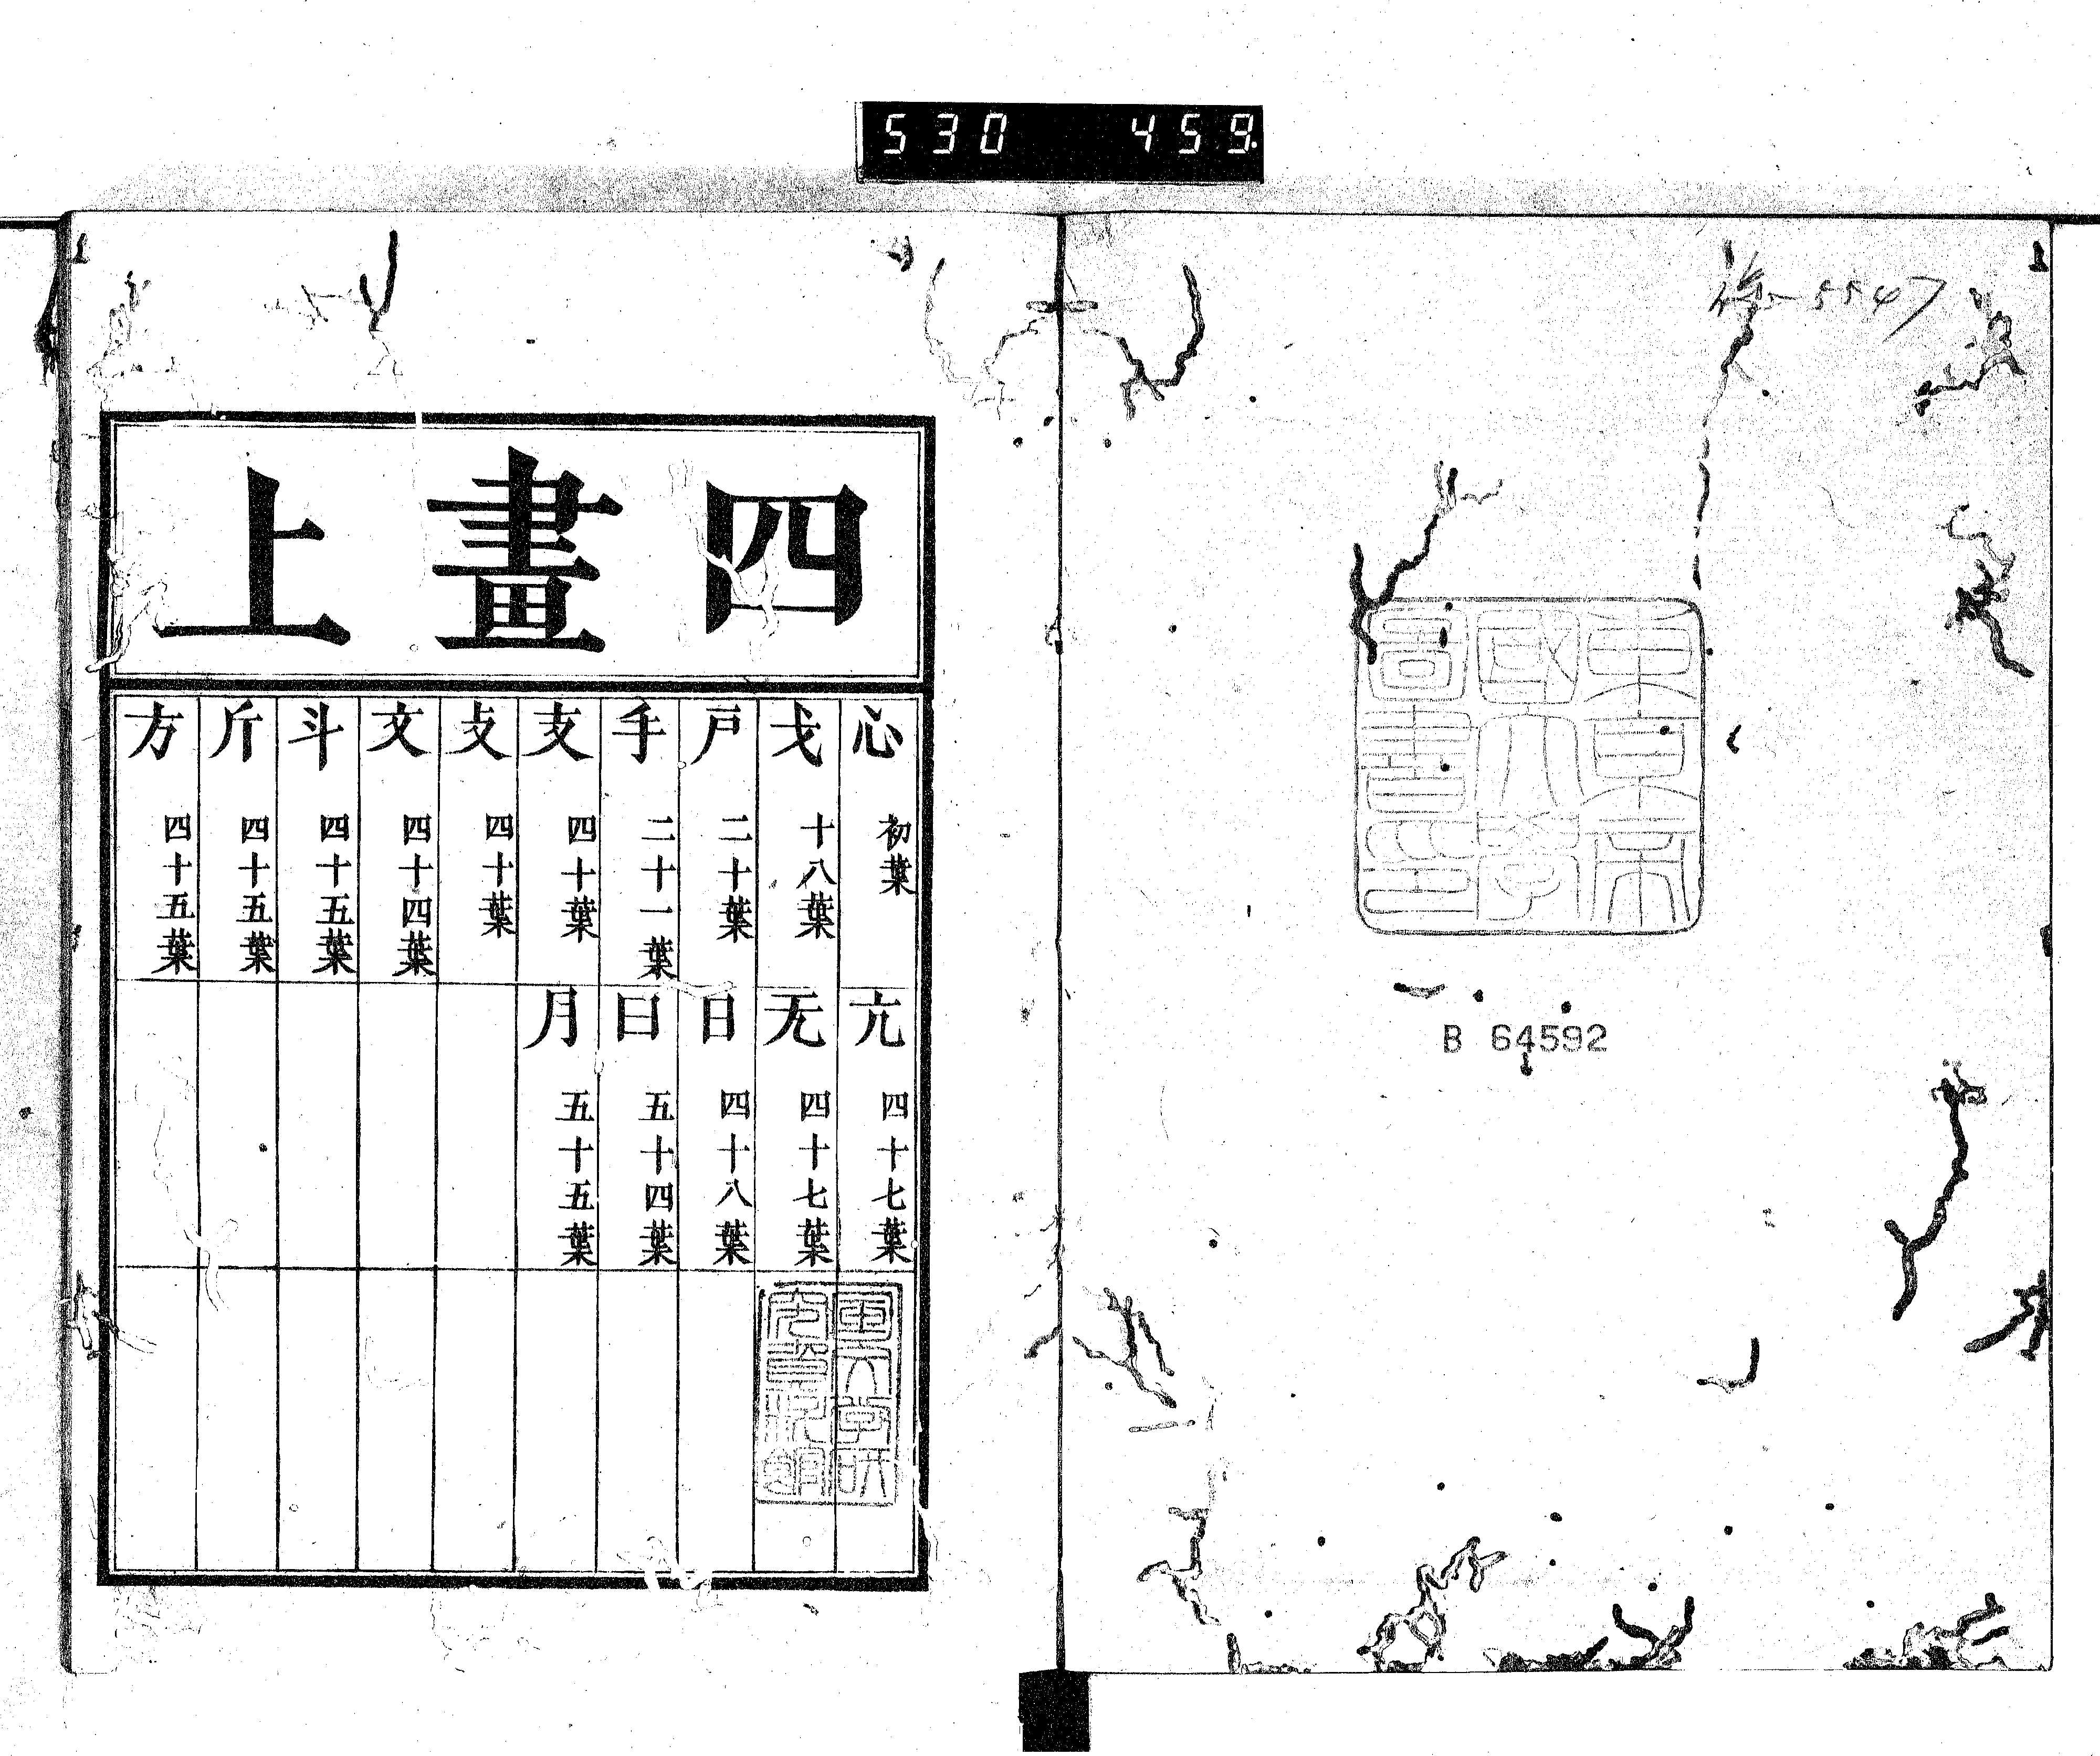 530 459
徐-5547
東京帝
國大學
圖書印
B 64592
四畫上
心 初葉
戈 十八葉
戶 二十葉
手 二十一葉
支 四十葉
攴 四十葉
文 四十四葉
斗 四十五葉
斤 四十五葉
方 四十五葉
亢 四十七葉
无 四十七葉
日 四十八葉
曰 五十四葉
月 五十五葉